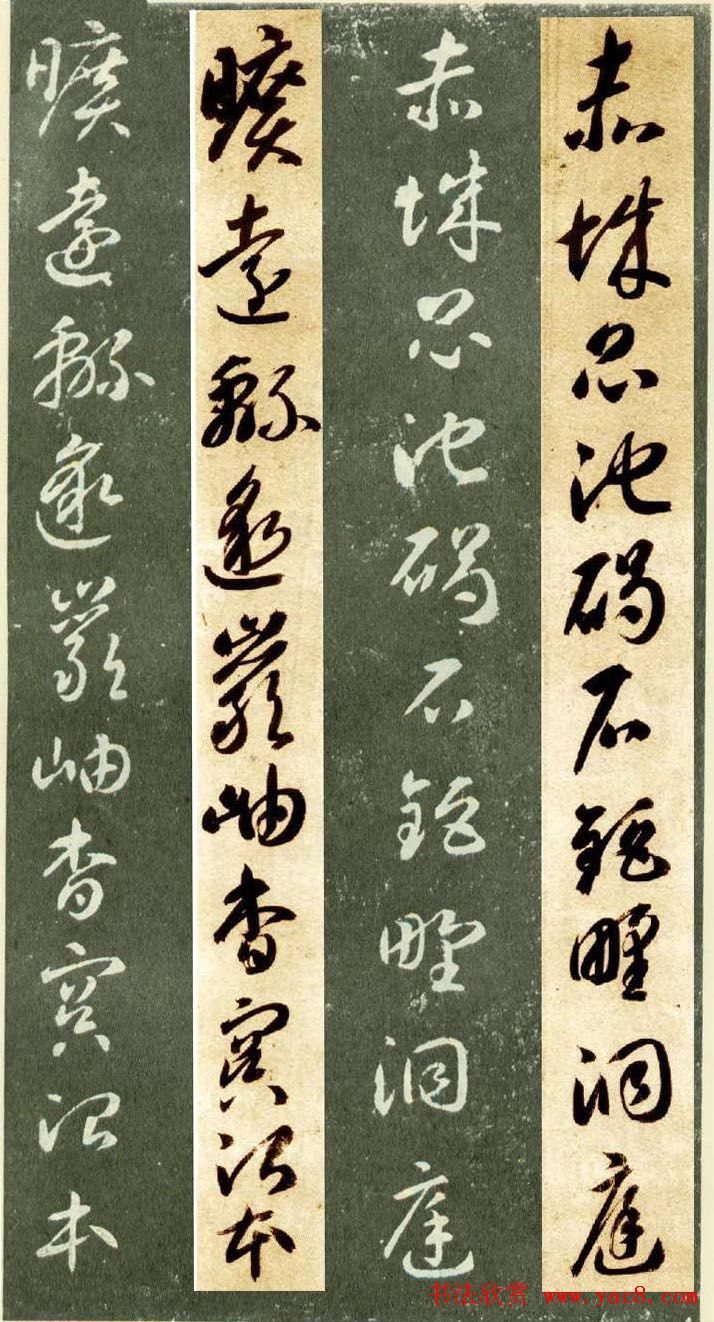 赤城昆池碣石鉅野洞庭
赤城昆池碣石鉅野洞庭
曠遠緜邈巖岫杳冥治本
曠遠緜邈巖岫杳冥治本
书法欣赏 www.yac8.com